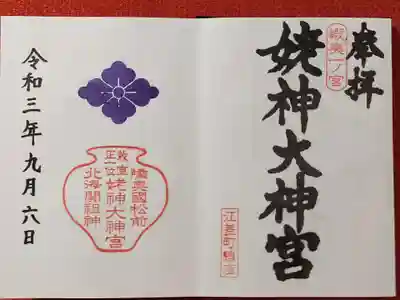 奉拝
蝦夷一ノ宮
姥神大神宮
江差町鎮座
蝦夷國松前
敕宣
正一位
姥神大神宮
北海開祖神
令和三年九月六日